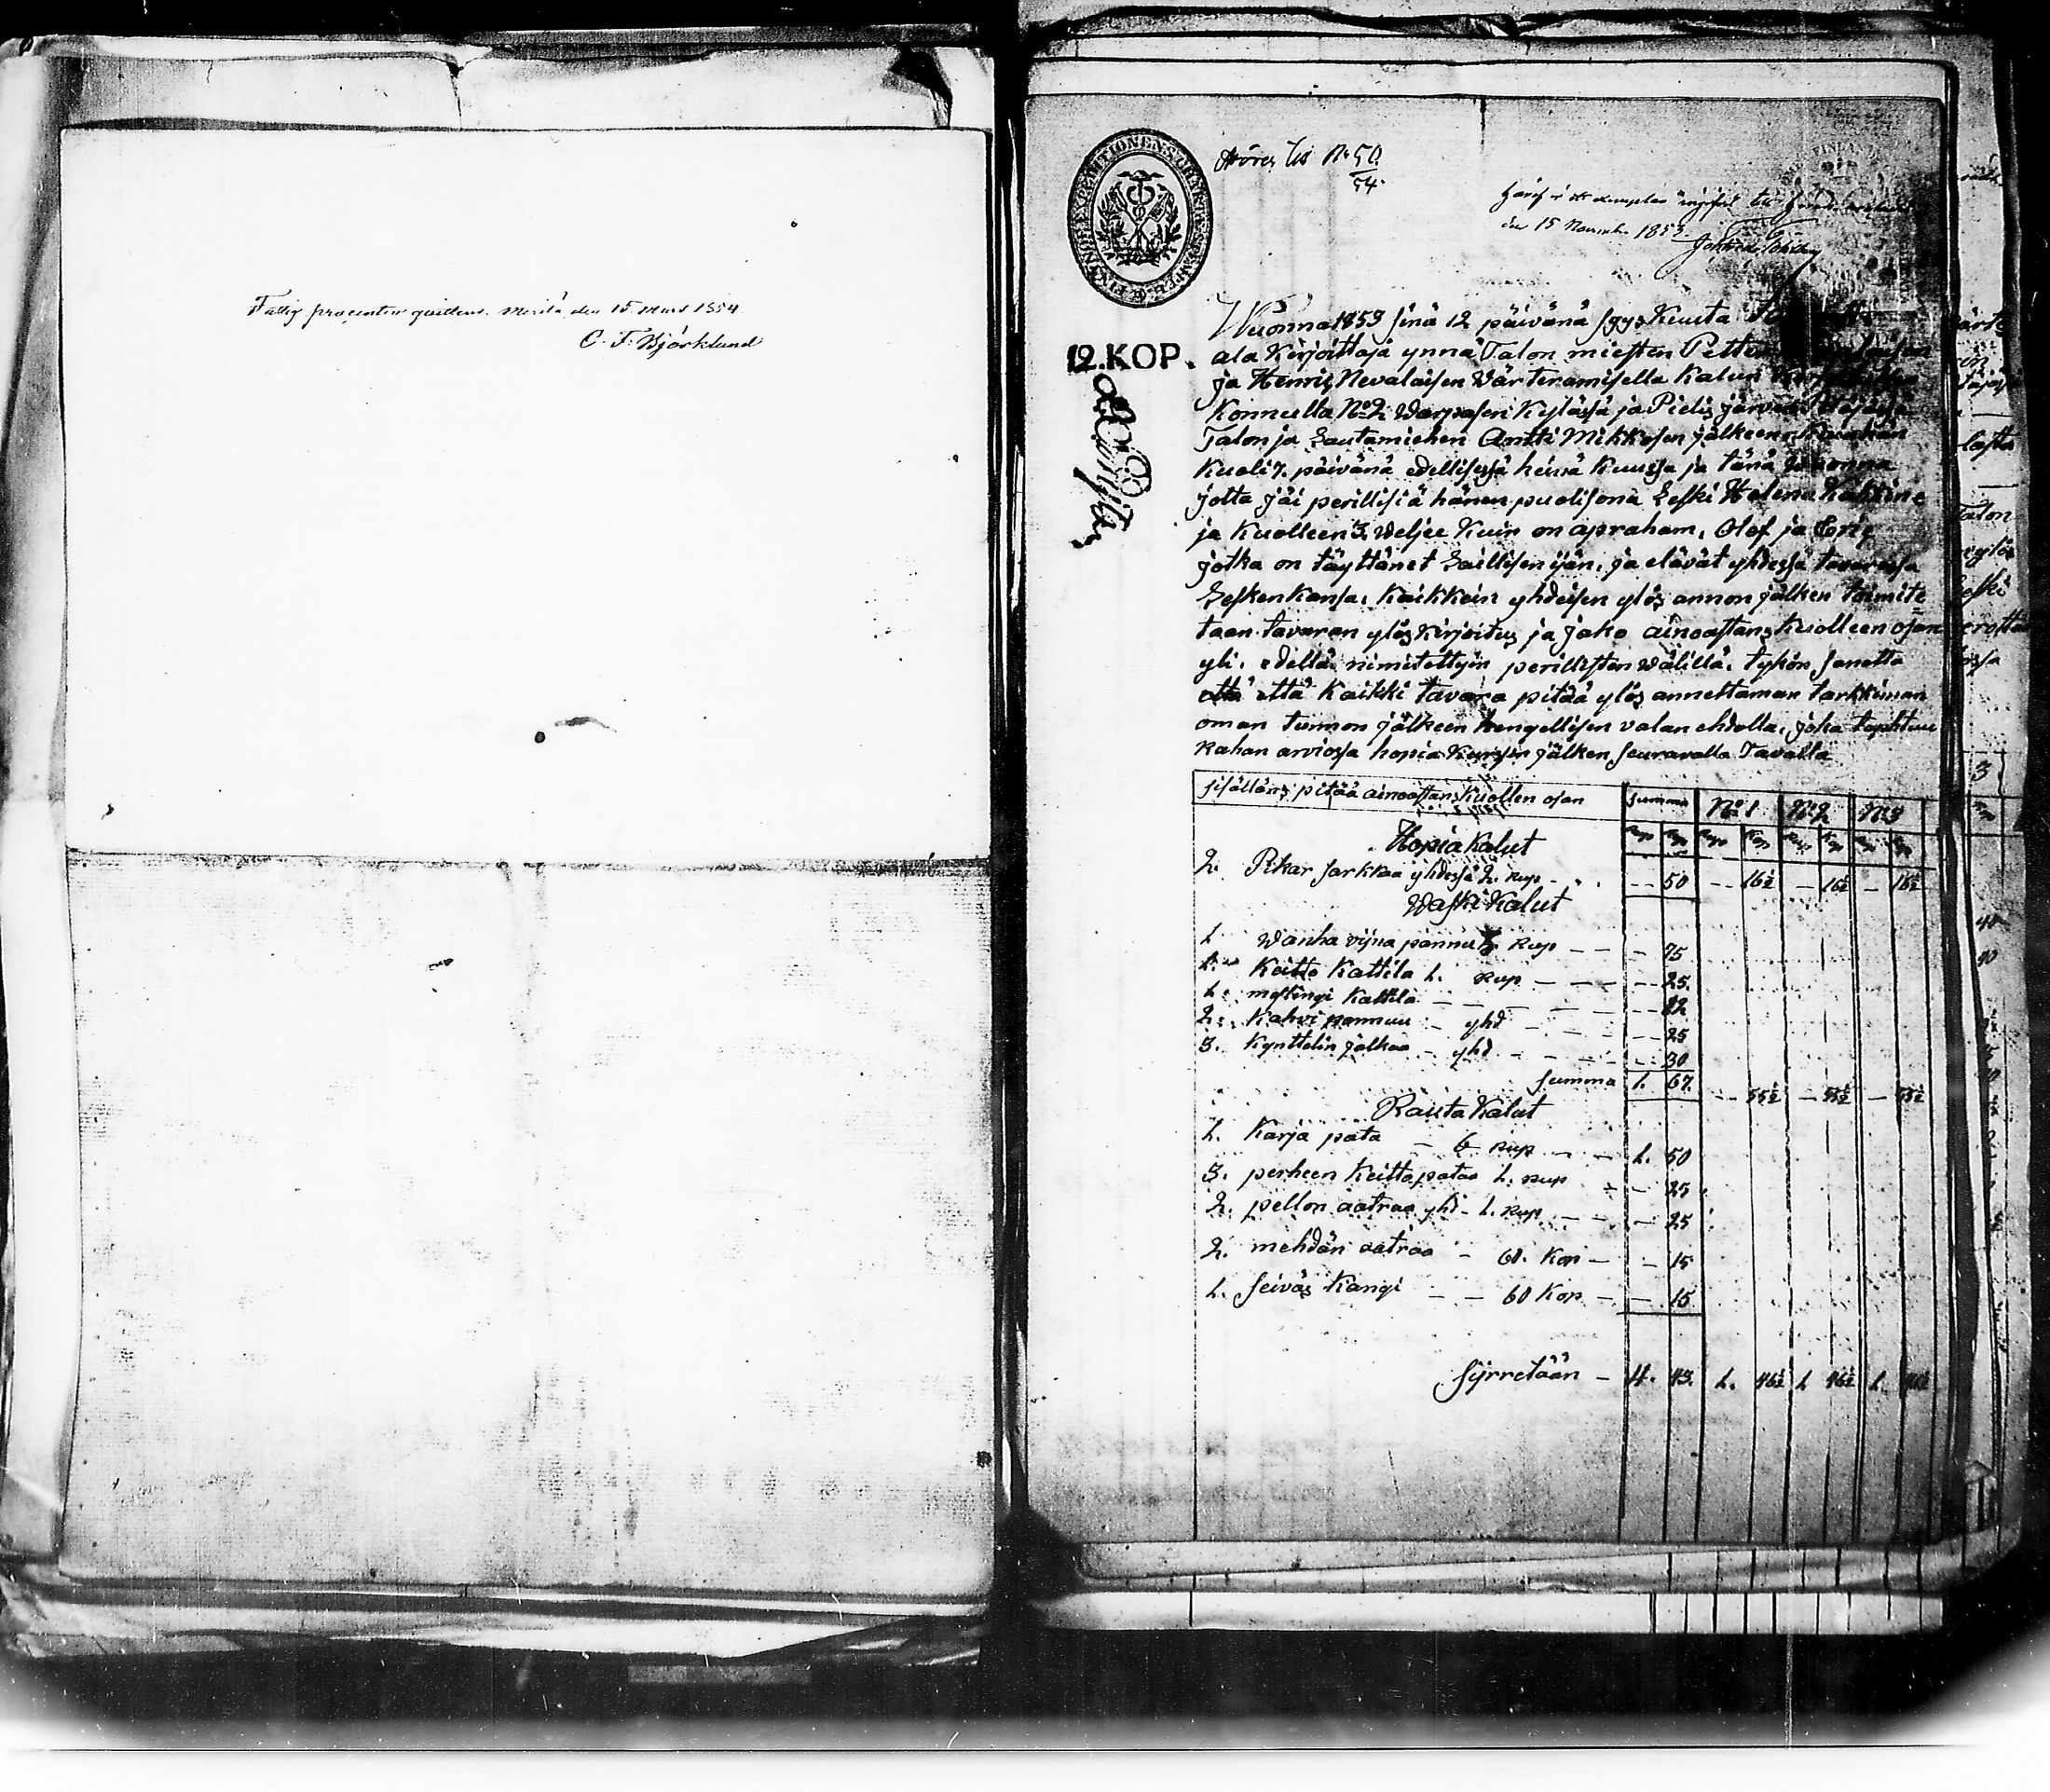 Fattig procenten quitteras. Nurmis den 15 Mars 1854
C. F. Björklund
FINSKA EXPEDITIONENS CHARTÆ STEMPEL
12.KOP.
Hörer till No 50/54.
den 15 Novemb. 1853.
Wuonna 1853 sinä 12 päivänä sgys Kuuta
ala Kirjoittaja ynnä Talon miesten Petter
ja Henric Nevalaisen Wärteramisella Kalun
Konnulla No 2 Warpasen Kylässä ja Pielis järven Pitäjässä
Talon ja Lautamiehen Antti Mikkosen jälkeen
Kuoli 7. päivänä edellisessä heinä Kuussa ja tänä Wuonna
jolta jäi perillisiä hänen puolisona Leski Helena Kahkine
ja Kuolleen 3. Weljee Kuin on apraham, Olof ja Eric
jotka on täyttänet Laillisen ijän, ja elävät yhdessä tavarassa
Lesken kansa, Kaikkein yhdeisen ylös annon jälken toimite
taan tavaran ylös kirjoitus ja jako ainoastans Kuolleen osan
yli, edellä nimitettyin perillisten Wälillä, tykön sanotta
että Kaikki tavara pitää ylös annettaman tarkkiman
oman tunnon jälkeen hengellisen valan ehdolla, joka tapahtuu
rahan arviossa hopia Kurssin jälken seuravalla Tavalla
sisälläns pitää ainoastans Kuollen osan summa No 1 No 2 No 3
Rup Kop Rup Kop Rup Kop Rup Kop
Hopia Kalut
2. Pikar sarkkaa yhdessä 2. Rup - - - 50 - - 16½ - 16½ - 16½
Waski Kalut
1 Wanha vijna pannu 3 Rup - - - 75
1. Keitto Kattila 1. Rup - - - 25.
1. mestingi Kattila - - - 12
2. Kahvi pannuu - yhd - - - 25
3. Kynttelin jalkaa - yhd - - - 30
Summa 1. 67. - - 55½ - 55½ - 55½
Rauta Kalut
1. Karja pata - 6 Rup - - 1. 50
3. perheen Keittopataa 1. Rup - 25
2. pellon aatraa yhd - 1. Rup - - - 25
2. mehdän aatraa - 60. Kop - - 15
1. Seiväs Kangi - - 60 Kop - - 15
Syrretään - 4. 43. 1. 46½ 1 46½ 1.